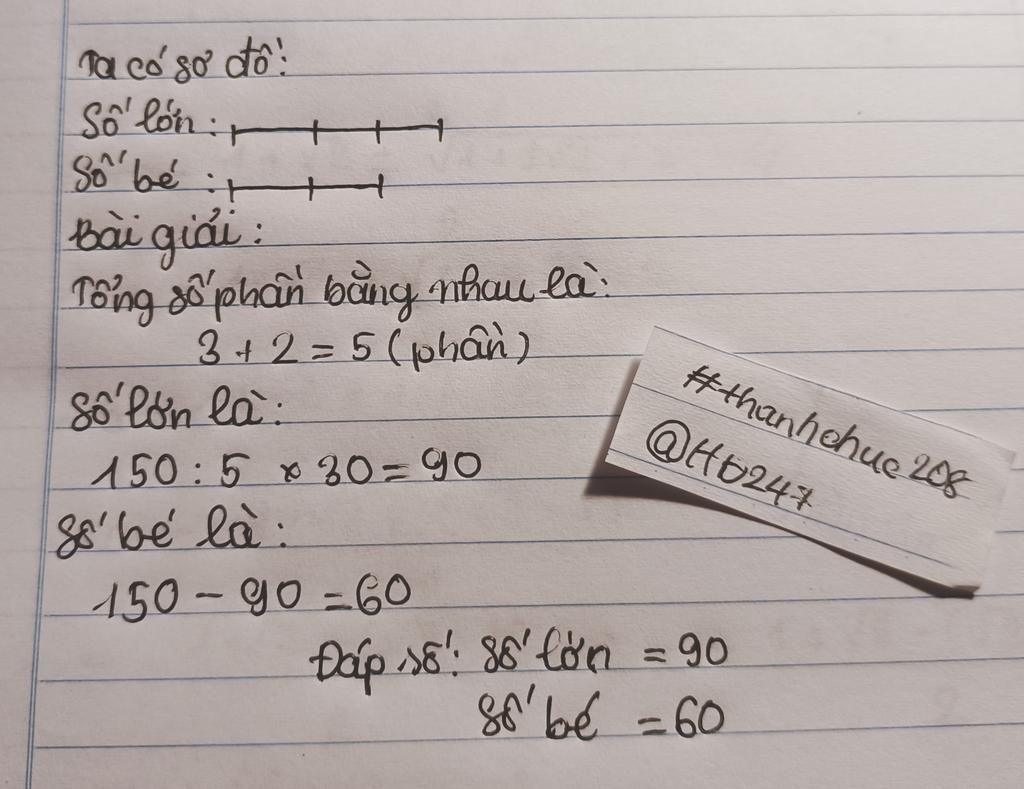 Ta có sơ đồ:
Số lớn:
Số bé:
Bài giải:
Tổng số phần bằng nhau là:
3 + 2 = 5 (phần)
Số lớn là:
150 : 5 × 30 = 90
Số bé là:
150 - 90 = 60
Đáp số: Số lớn = 90
Số bé = 60
#thanhchuc208
@Hb247